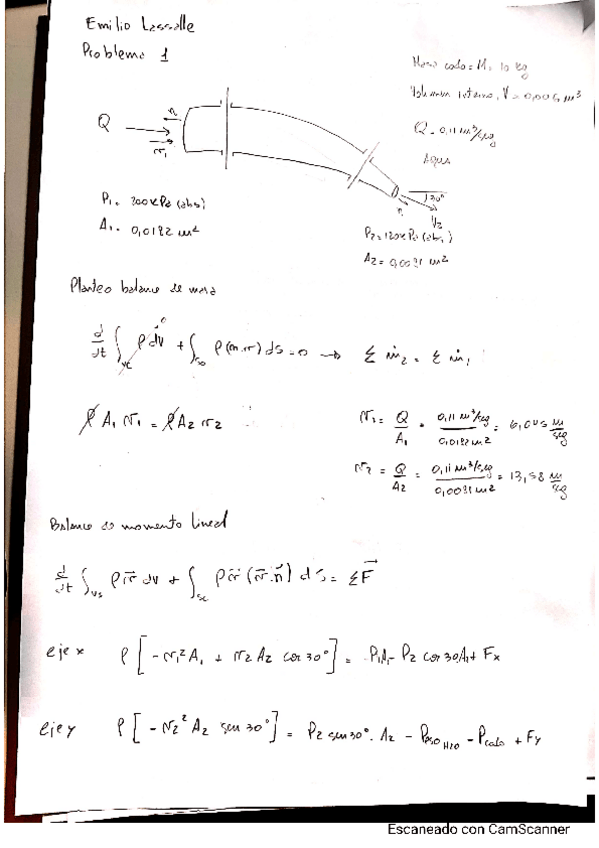 Emilio Lassalle
Problema 1
Masa codo = M = 10 kg
Volumen interno, V = 0,006 m³
Q = 0,11 m³/seg
Agua
Q
n
v₁
n
30°
V₂
P₁ = 200 kPa (abs)
A₁ = 0,0182 m²
P₂ = 120 kPa (abs)
A₂ = 0,0081 m²
Planteo balance de masa
d/dt ∫vc ρ dv + ∫sc ρ(n.v) ds = 0 → Σ ṁ₂ = Σ ṁ₁
ρ A₁ v₁ = ρ A₂ v₂
v₁ = Q/A₁ = 0,11 m³/seg / 0,0182 m² = 6,045 m/seg
v₂ = Q/A₂ = 0,11 m³/seg / 0,0081 m² = 13,58 m/seg
Balance de momento lineal
d/dt ∫ ρ v⃗ dv + ∫sc ρ v⃗ (v⃗.n⃗) ds = Σ F⃗
eje x ρ [ - v₁² A₁ + v₂ A₂ cos 30° ] = P₁A₁ - P₂ cos 30 A₁ + Fx
eje y ρ [ - v₂² A₂ sen 30° ] = P₂ sen 30° . A₂ - Peso H₂O - Pcodo + Fy
Escaneado con CamScanner